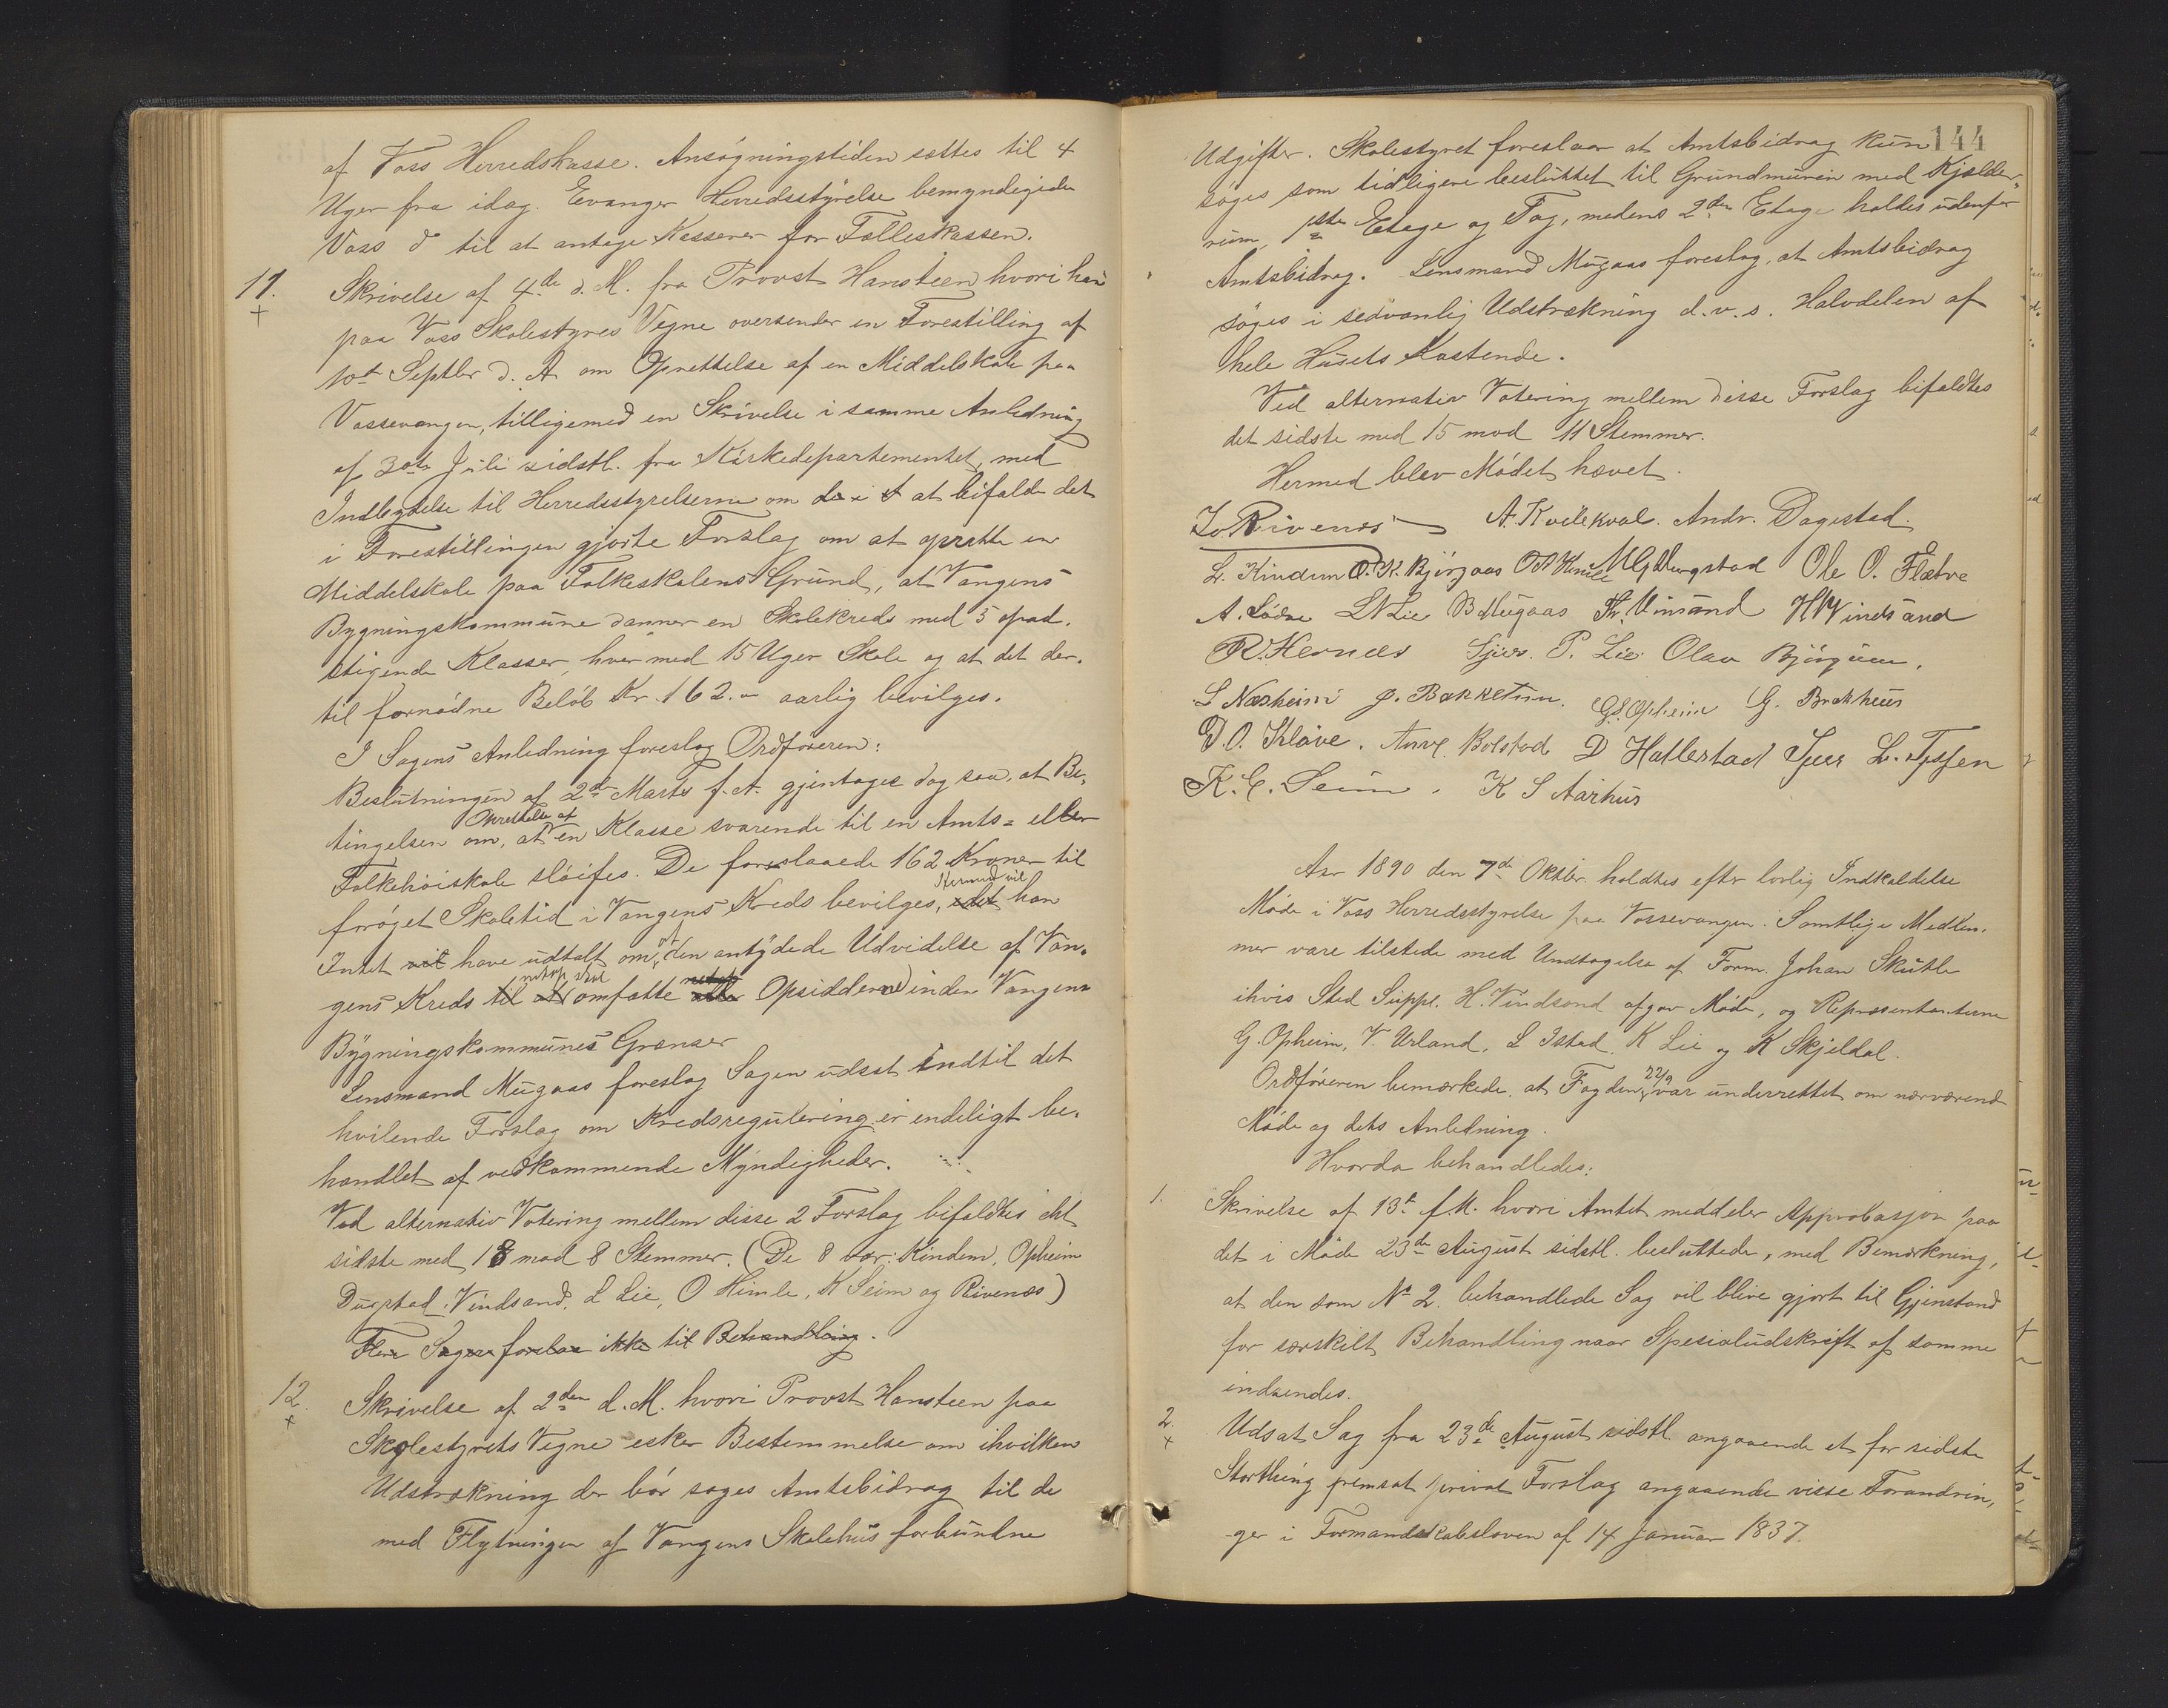 af Voss Herredskasse. Ansøgningstiden sættes til 4
Uger fra idag. Evanger Herredsstyrelse bemyndigede
Voss d° til at antage Kasserer for Fælleskassen.
11. Skrivelse af 4de d. M. fra Provst Hansteen hvori han
paa Voss Skolestyres Vegne oversender en Forestilling af
10de Septbr d. A. om Oprettelse af en Middelskole paa
Vossevangen, tilligemed en Skrivelse i samme Anledning
af 30te Juli sidstl. fra Kirkedepartementet, med
Indbydelse til Herredsstyrelserne om at bifalde det
i Forestillingen gjorte Forslag om at oprette en
Middelskole paa Folkeskolens Grund, at Vangens
Bygningskommune danner en Skolekreds med 5 opad-
stigende Klasser, hver med 15 Uger Skole og at det der-
til fornødne Beløb Kr. 162.- aarlig bevilges.
I Sagens Anledning foreslog Ordføreren:
Beslutningen af 2den Marts f. A. gjentages dog saa, at Be-
tingelsen om, at Oprettelse af en Klasse svarende til en Amts- eller
Folkehøiskole sløifes. De foreslaaede 162 Kroner til
forøget Skoletid i Vangens Kreds bevilges, idet Hermed vil han
Intet vil have udtalt om, at den antydede Udvidelse af Van-
gens Kreds til at netop skal omfatte Opsidderne inden Vangens
Bygningskommunes Grænser
Lensmand Mugaas foreslog Sagen udsat indtil det
hvilende Forslag om Kredsregulering er endeligt be-
handlet af vedkommende Myndigheder.
Ved alternativ Votering mellem disse 2 Forslag bifaldtes det
sidste med 18 mod 8 Stemmer. (De 8 var: Kindem, Opheim
Dugstad, Vindsand, L Lie, O Himle, K Seim og Rivenæs)
Flere Sager forelaa ikke til Behandling.
12. Skrivelse af 2den d. M. hvori Provst Hansteen paa
Skolestyrets Vegne æsker Bestemmelse om ihvilken
Udstrækning der bør søges Amtsbidrag til de
med Flytningen af Vangens Skolehus forbundne
144
Udgifter. Skolestyret foreslaar at Amtsbidrag kun
søges som tidligere besluttet til Grundmuren med Kjælder-
rum, 1ste Etage og Tag, medens 2den Etage holdes udenfor
Amtsbidrag. Lensmand Mugaas foreslog, at Amtsbidrag
søges i sedvanlig Udstrækning d.v.s. Halvdelen af
hele Husets Kostende.
Ved alternativ Votering mellem disse Forslag bifaldtes
det sidste med 15 mod 11 Stemmer.
Hermed blev Mødet hævet.
Rivenæs A. Kvilekval. Andr. Dagestad.
L. Kindem O. K. Bjørgaas O Himle Dugstad Ole O. Flatve
A. Lødve L N Lie B Mugaas Vinsand H Windsand
R. Hernæs Sjur P. Lie Olav Bjørgum.
L Næsheim J. Bakketun. G. S. Opheim G. Brekhus
D. O. Kløve. Arne Bolstad D Hatlestad Sjur L. Tessen
K. C. Seim. K S Aarhus
Aar 1890 den 7de Oktbr. holdtes efter lovlig Indkaldelse
Møde i Voss Herredsstyrelse paa Vossevangen. Samtlige Medlem-
mer vare tilstede med Undtagelse af Form. Johan Skutle
ihvis Sted Suppl. H. Vindsand afgav Møde, og Repræsentanterne
G. Opheim, V. Urland, L Istad, K Lie og K Skjeldal.
Ordføreren bemærkede, at Fogden 22/9 var underrettet om nærværende
Møde og dets Anledning.
Hvorda behandledes:
1. Skrivelse af 13de f.M. hvori Amtet meddeler Approbasjon paa
det i Møde 23de August sidstl. besluttede, med Bemærkning,
at den som No 2. behandlede Sag vil blive gjort til Gjenstand
for særskilt Behandling naar Spesialudskrift af samme
indsendes.
2. Udsat Sag fra 23de August sidstl. angaaende et for sidste
Storthing fremsat privat Forslag angaaende visse Forandrin-
ger i Formandskabsloven af 14 Januar 1837.